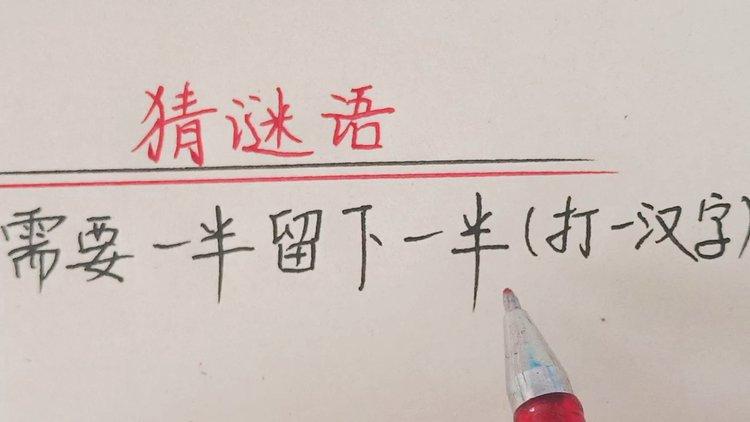 猜谜语
需要一半留下一半(打一汉字)